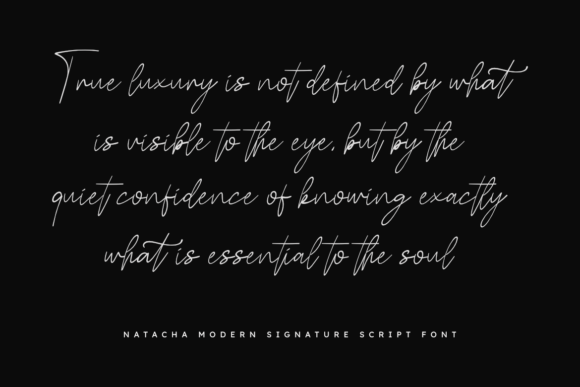 True luxury is not defined by what
is visible to the eye, but by the
quiet confidence of knowing exactly
what is essential to the soul
NATACHA MODERN SIGNATURE SCRIPT FONT